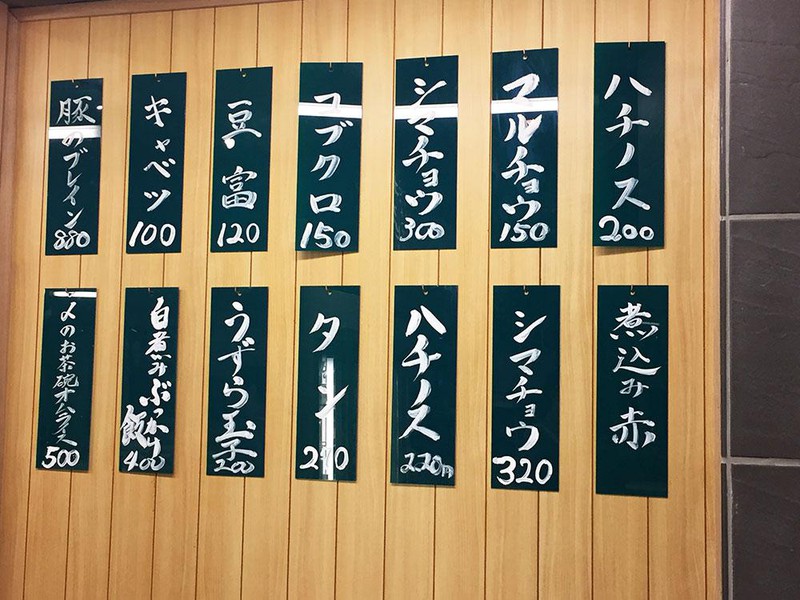 ハチノス
200
マルチョウ
150
シマチョウ
300
コブクロ
150
豆富
120
キャベツ
100
豚のブレイン
880
煮込み赤
シマチョウ
320
ハチノス
220円
タン
270
うずら玉子
200
白煮みぶっかけ
飯
400
〆のお茶碗オムライス
500